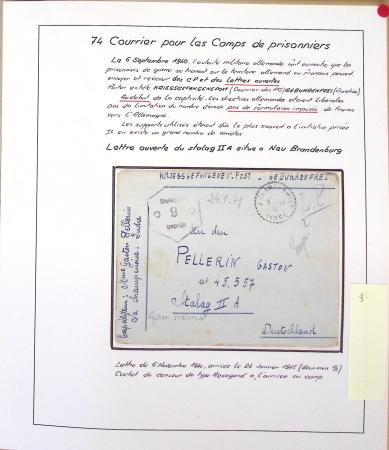 74 Courrier pour les Camps de prisonniers
Le 6 Septembre 1940, l'autorité militaire allemande fait connaître que les
prisonniers de guerre se trouvant sur le territoire allemand ou Français peuvent
envoyer et recevoir des CP et des lettres ouvertes
KRIEGSGEFANGENENPOST (Courrier des PG) GEBÜHRENFREI (Franchise)
Au début de la captivité. Les directives allemandes étaient libérales
pas de limitation du nombre d'envoi pas de formulaires imposés de France
vers l'Allemagne
Les supports utilisés étaient dûs le plus souvent à l'initiative privée
Il en existe un grand nombre de variétés
Lettre ouverte du stalag II A située à Neu Brandenburg
KRIEGSGEFANGENEN.POST - GEBÜHRENFREI
Stalag
9
geprüft
24.1.41
An den
PELLERIN GASTON
n° 45.557
Stalag II A
Deutschland
Expéditeur: Mme Gaston Pellerin
Indre
Lettre du 6 Novembre 1940, arrivée le 24 Janvier 1941
Cachet du censeur de type Hexagonal à l'arrivée au camp